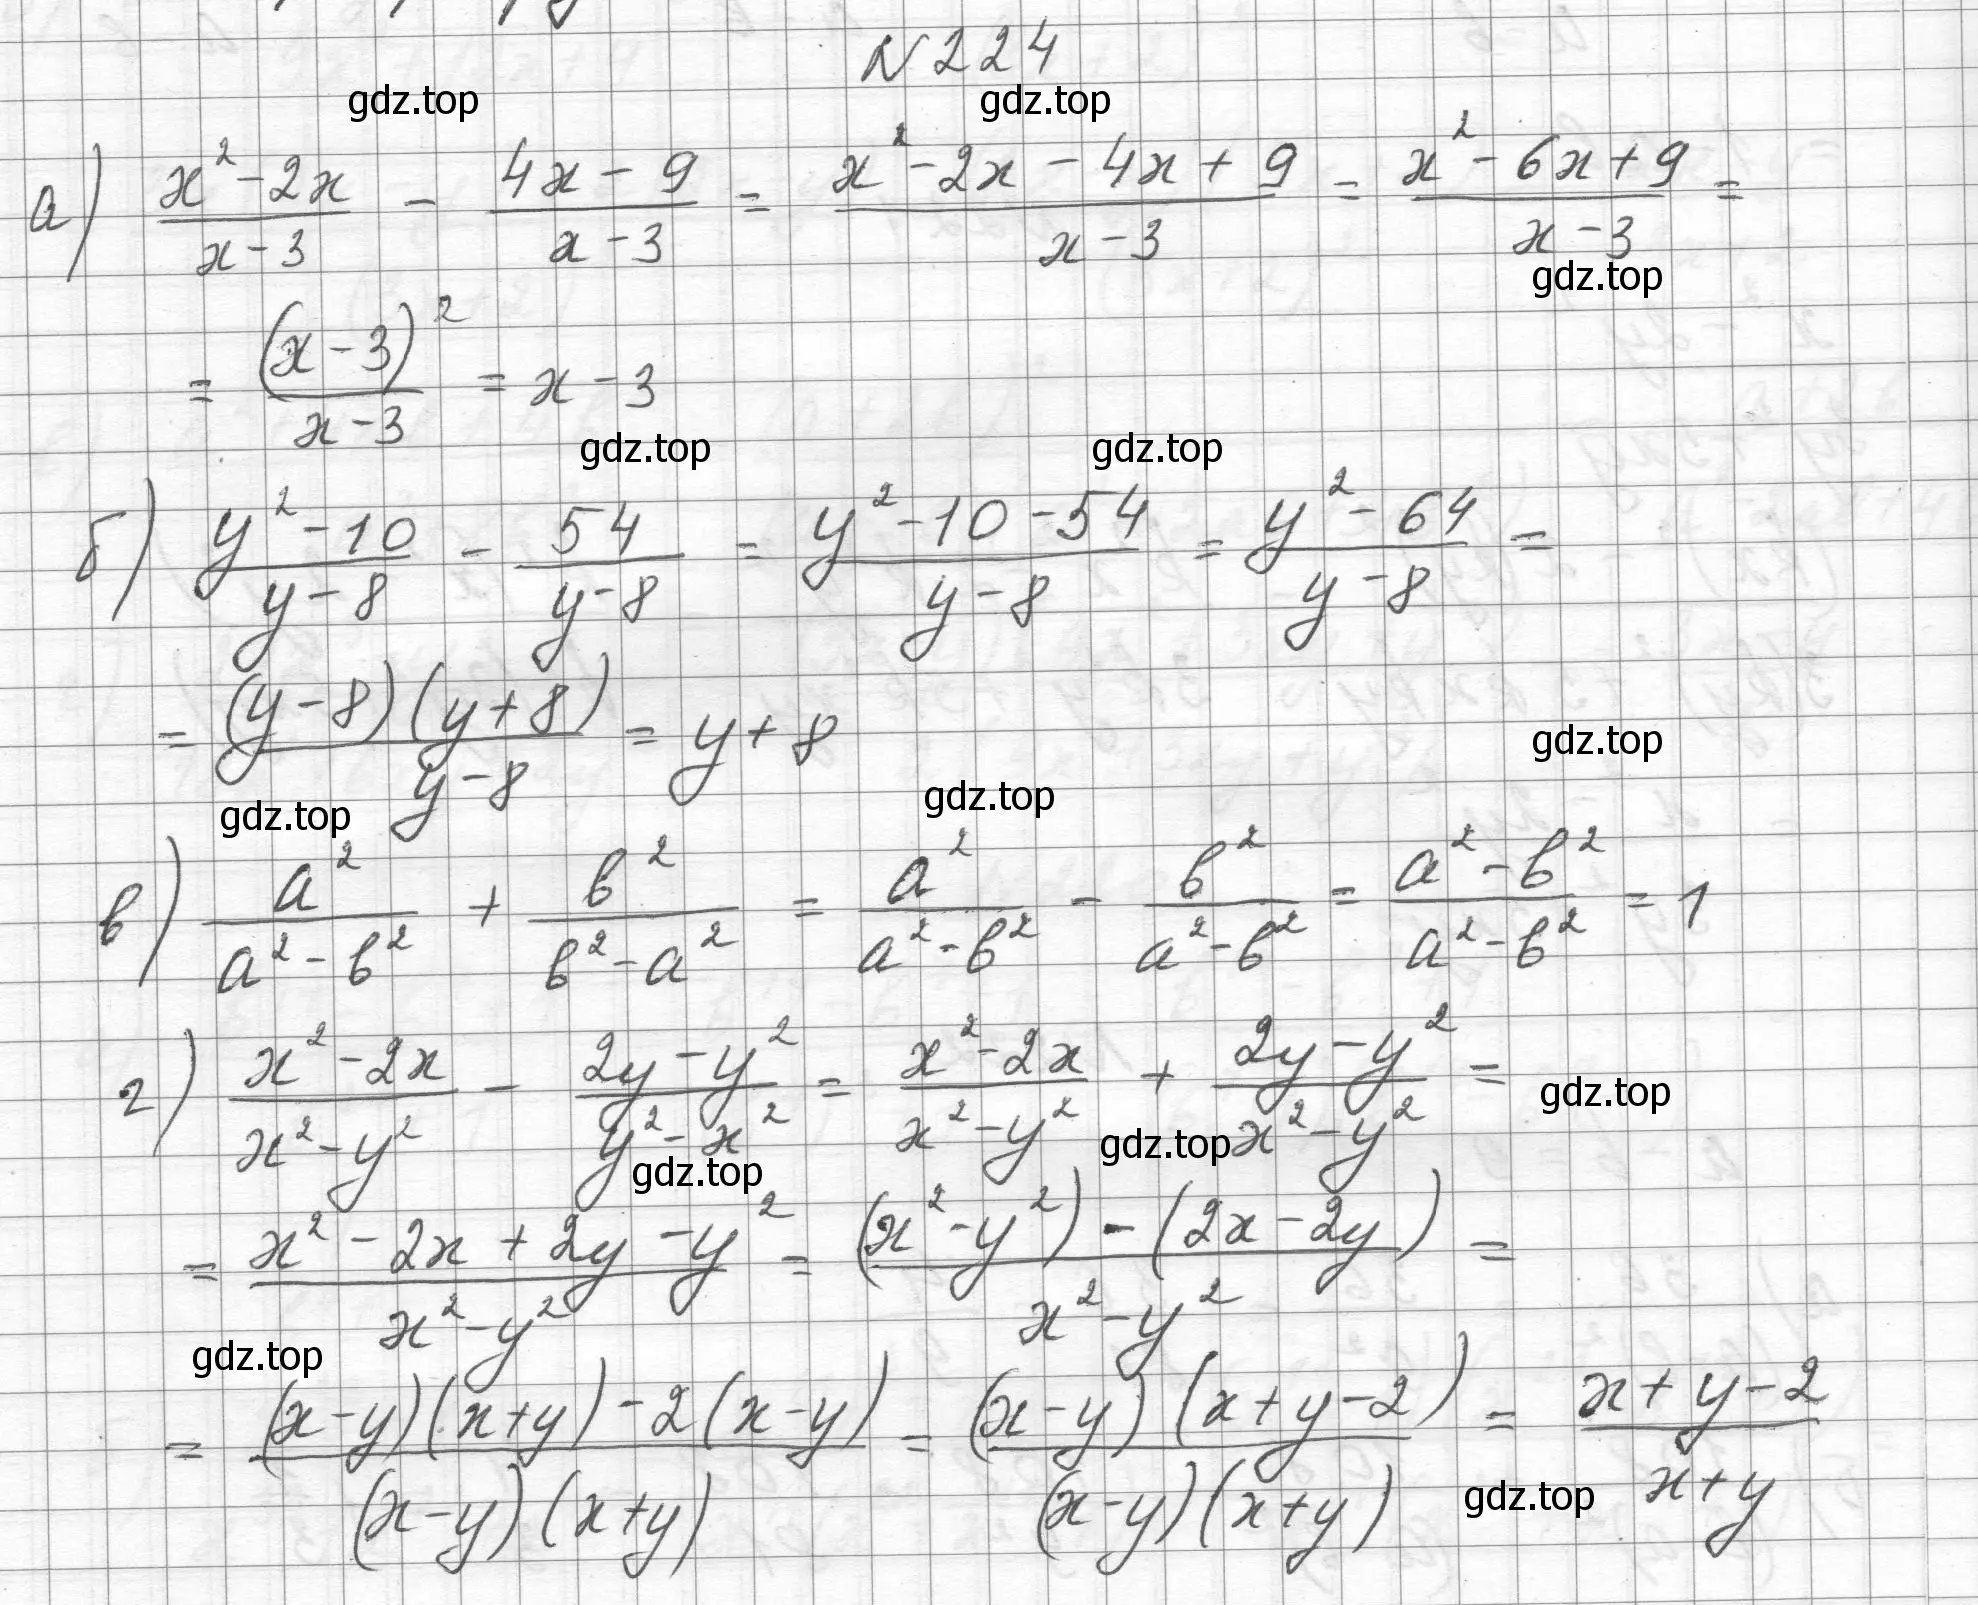 N 224
gdz.top gdz.top
а) (x² - 2x)/(x - 3) - (4x - 9)/(x - 3) = (x² - 2x - 4x + 9)/(x - 3) = (x² - 6x + 9)/(x - 3) =
gdz.top
= (x - 3)²/(x - 3) = x - 3
gdz.top gdz.top
б) (y² - 10)/(y - 8) - 54/(y - 8) = (y² - 10 - 54)/(y - 8) = (y² - 64)/(y - 8) =
= (y - 8)(y + 8)/(y - 8) = y + 8
gdz.top
gdz.top gdz.top
в) a²/(a² - b²) + b²/(b² - a²) = a²/(a² - b²) - b²/(a² - b²) = (a² - b²)/(a² - b²) = 1
г) (x² - 2x)/(x² - y²) - (2y - y²)/(y² - x²) = (x² - 2x)/(x² - y²) + (2y - y²)/(x² - y²) =
gdz.top
gdz.top gdz.top
= (x² - 2x + 2y - y²)/(x² - y²) = ((x² - y²) - (2x - 2y))/(x² - y²) =
gdz.top
= ((x - y)(x + y) - 2(x - y))/((x - y)(x + y)) = (x - y)(x + y - 2)/((x - y)(x + y)) = (x + y - 2)/(x + y)
gdz.top